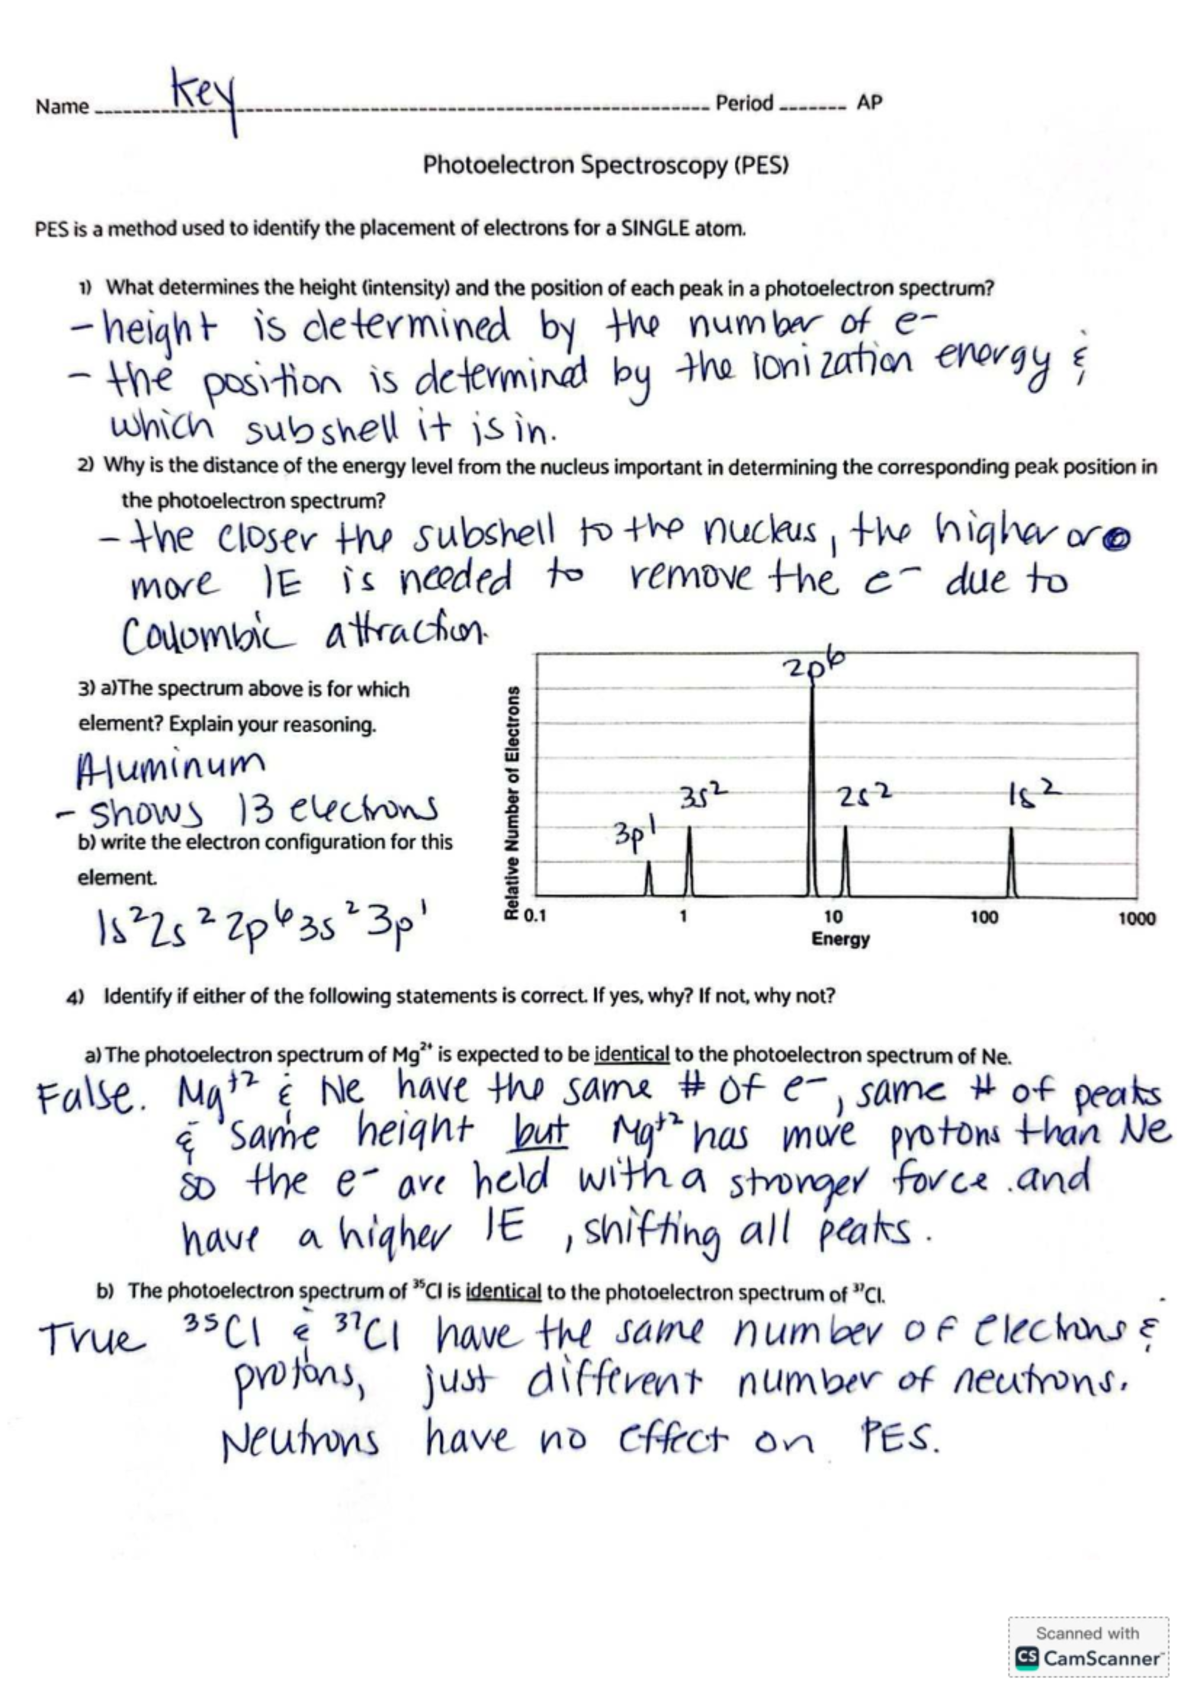 Name key Period AP
Photoelectron Spectroscopy (PES)
PES is a method used to identify the placement of electrons for a SINGLE atom.
1) What determines the height (intensity) and the position of each peak in a photoelectron spectrum?
- height is determined by the number of e-
- the position is determined by the ionization energy &
which subshell it is in.
2) Why is the distance of the energy level from the nucleus important in determining the corresponding peak position in
the photoelectron spectrum?
- the closer the subshell to the nucleus, the higher or
more IE is needed to remove the e- due to
Coulombic attraction.
3) a)The spectrum above is for which
element? Explain your reasoning.
Aluminum
- shows 13 electrons
b) write the electron configuration for this
element.
1s²2s²2p⁶3s²3p¹
Relative Number of Electrons
2p⁶
3s² 2s² 1s²
3p¹
0.1 1 10 100 1000
Energy
4) Identify if either of the following statements is correct. If yes, why? If not, why not?
a) The photoelectron spectrum of Mg²⁺ is expected to be identical to the photoelectron spectrum of Ne.
False. Mg⁺² & Ne have the same # of e-, same # of peaks
& same height but Mg⁺² has more protons than Ne
so the e- are held with a stronger force .and
have a higher IE , shifting all peaks.
b) The photoelectron spectrum of ³⁵Cl is identical to the photoelectron spectrum of ³⁷Cl.
True ³⁵Cl & ³⁷Cl have the same number of electrons &
protons, just different number of neutrons.
Neutrons have no effect on PES.
Scanned with
CS CamScanner